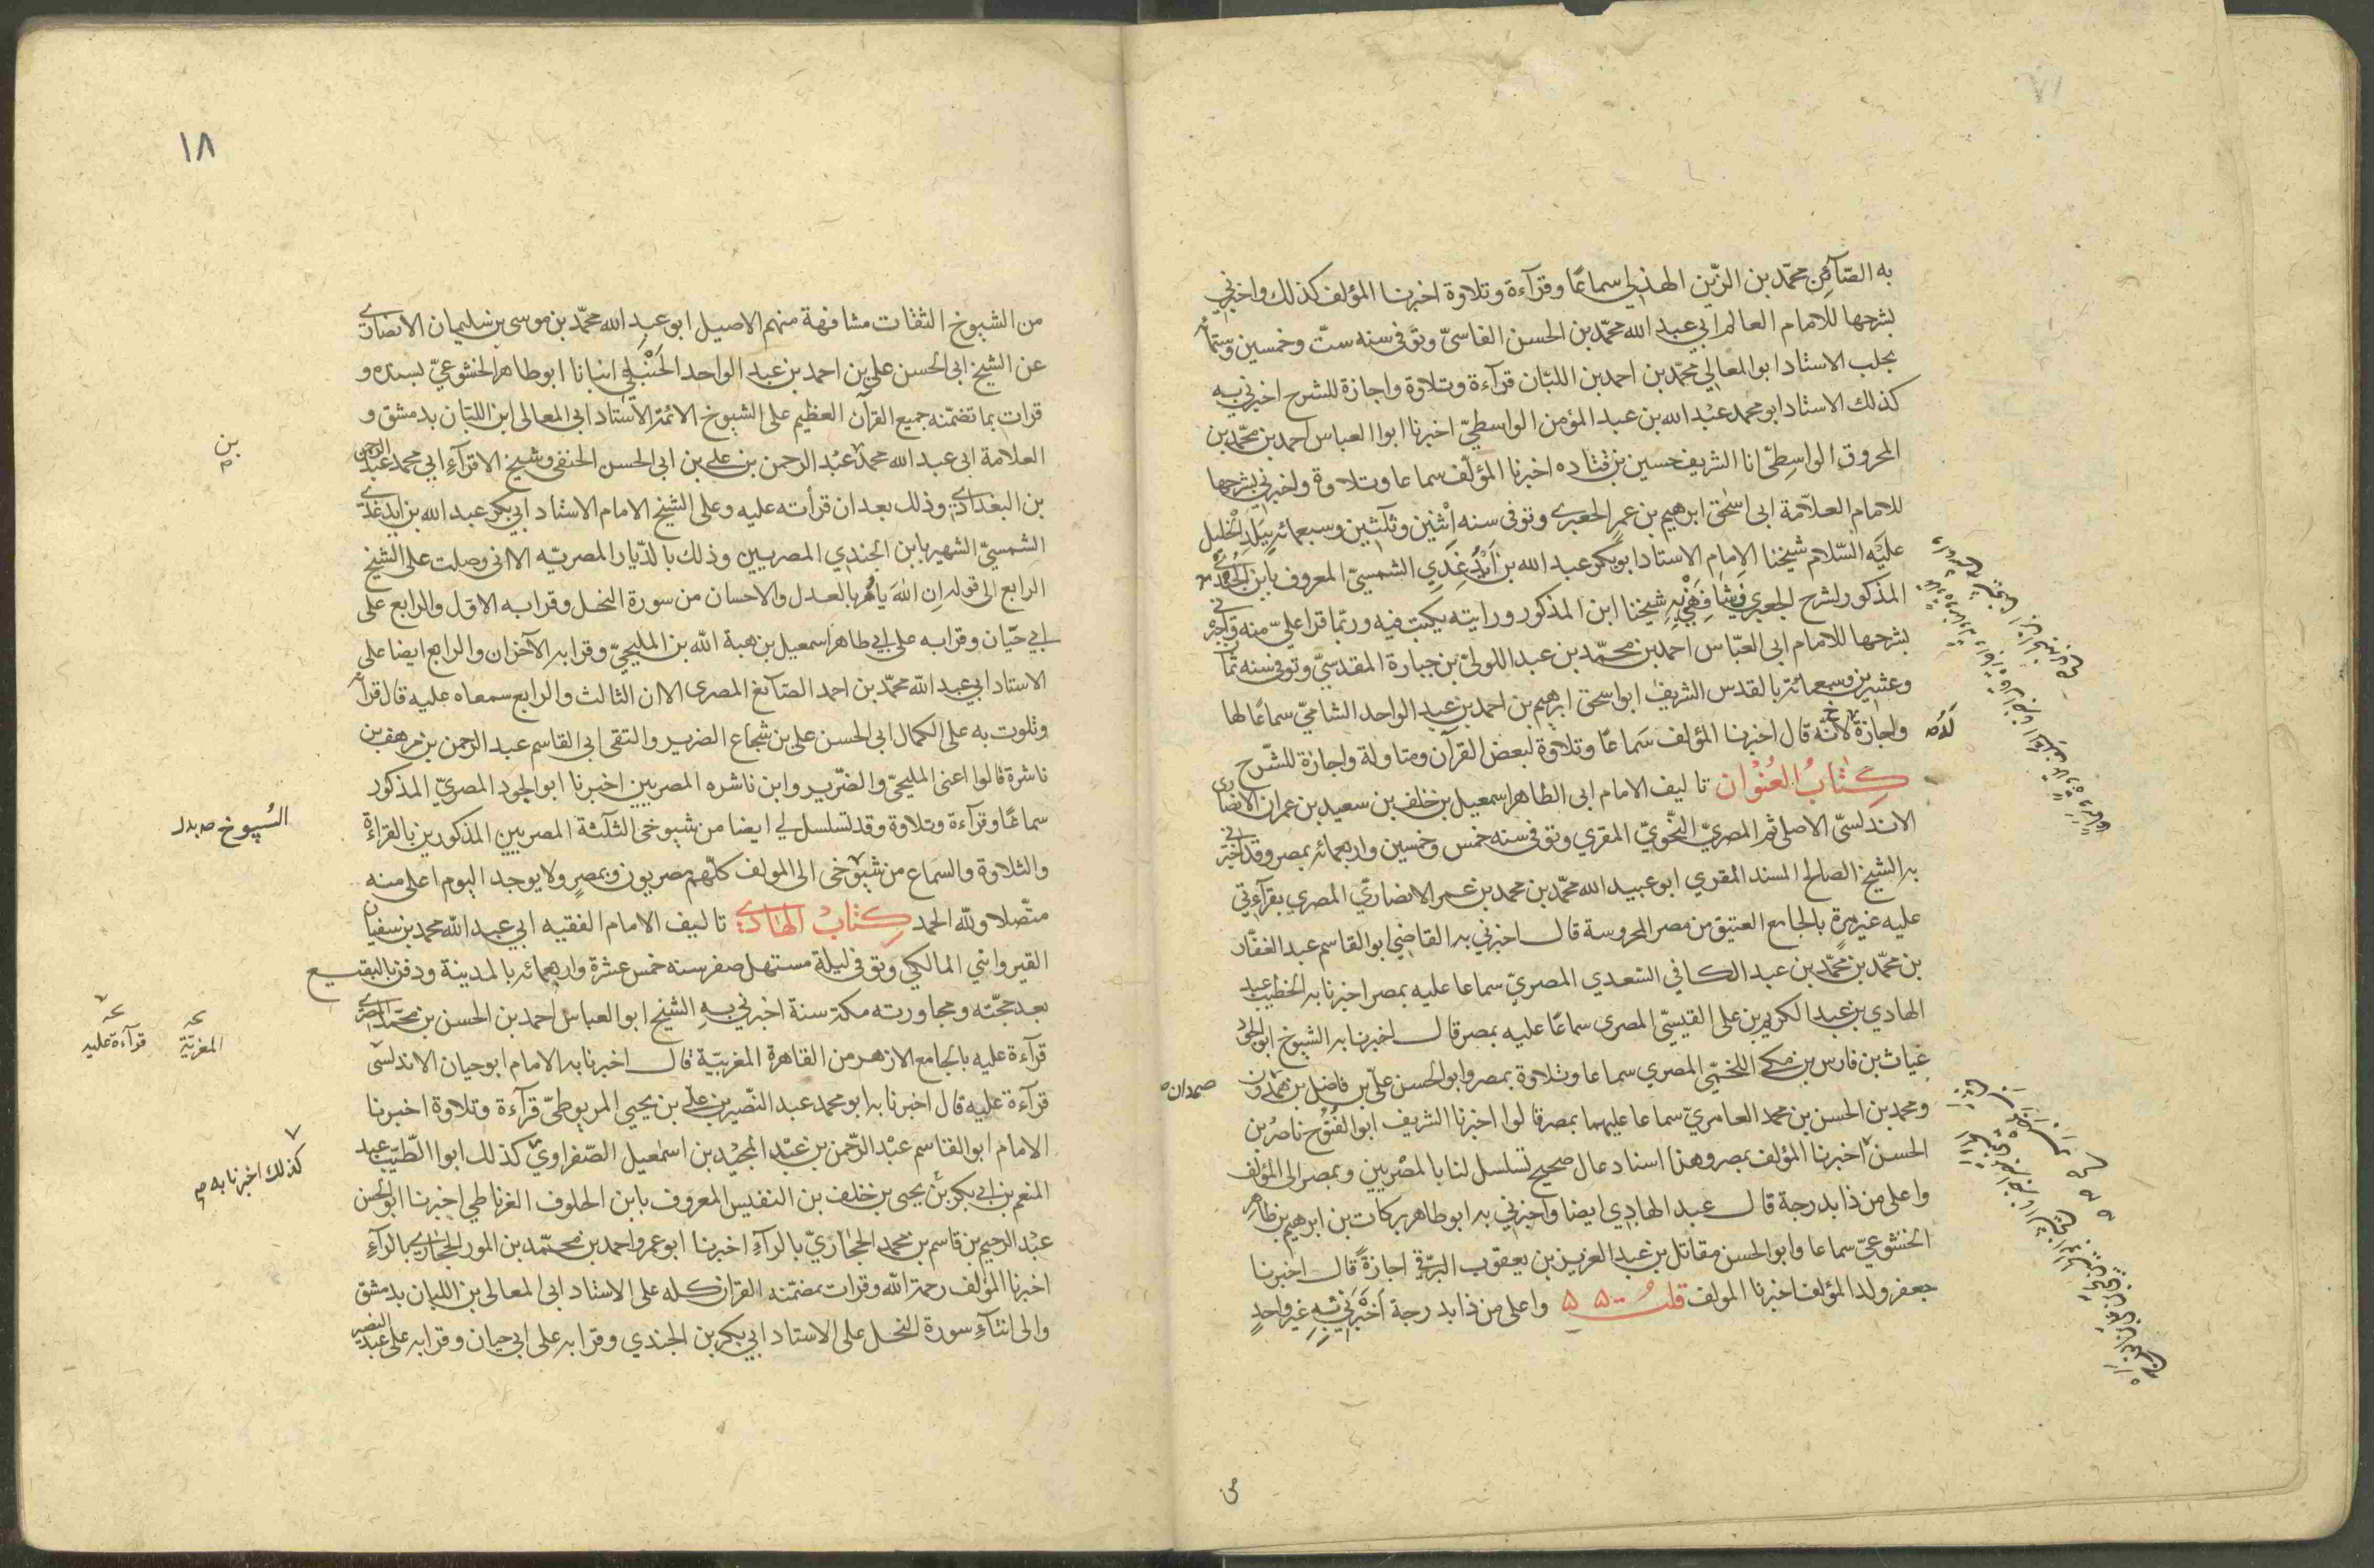 به الصّآئن محمّد بن الزّين الهذلي سماعًا وقرآءة وتلاوة اخبرنا المؤلف كذلك واخبرني
بشرحها للامام العالم ابي عبد الله محمّد بن الحسن الفاسيّ وتوفى سنه ستّ وخمسين وستمأ
بحلب الاستاد ابو المعالي محمّد بن احمد بن اللبّان قرآءة وتلاوة واجازة للشرح اخبرني به
كذلك الاستاد ابو محمد عبْد الله بن عبد المؤمن الواسطيّ اخبرنا ابوا العباس احمد بن محمّد بن
المحروق الواسِطيّ انا الشريف حسين بن قتاده اخبرنا المؤلّف سماعا وتلاوة واخبرني بشرحها
للامام العلاّمة ابى اسٰحٰق ابرهيم بن عمر الجعبرى وتوفى سنه اِثْنين وثلٰثين وسبعمائه ببَلَدِ الْخليل
عليْه السّلام شيخنا الامام الاستاد ابو بكر عبد الله بن اَيْدُغدي الشمسيّ المعروف بابن الجُندي
المذكور لشرح الجعبري وشافهني به شيخنا ابن المذكور ورايته يكتب فيه وربّما قرا عليّ منه واخبرني
بشرحها للامام ابى العبّاس احمد بن محمّد بن عبد اللولىّ بن جبارة المقدسيّ وتوفى سنه ثمأ
وعشرين وسبعمائة بالقدس الشريف ابو اسحق ابرهيم بن احمد بن عبد الواحد الشاميّ سماعًا لها
واجازة لانّه قال اخبرنا المؤلف سَماعًا وتلاوة لبعض القرآن ومناولة واجازة للشّرح
كِتٰابُ العُنوْان تاليف الامام ابى الطاهر اسمعيل بن خلف بن سعيد بن عمران الانصاري
الاندلسىّ الاصلى ثم المصريّ النَّحْويّ المقري وتوفى سنه خمس وخمسين واربعمائه بمصر وقد اخبرني
به الشيخ الصالح المسند المقري ابو عبيد الله محمّد بن محمد بن عمر الانصاريّ المصري بقرآءتي
عليه غير مرةٍ بالجامع العتيق من مصر المحروسة قال اخبرني به القاضي ابو القاسم عبد الغفّار
بن محمّد بن محمّد بن عبد الكافي السّعدي المصريّ سماعا عليه بمصر اخبرنا به الخطيب عبد
الهادي بن عبد الكريم بن على القيسيّ المصرى سماعًا عليه بمصر قال اخبرنا به الشيوخ ابو الجود
غياث بن فارس بن مكى اللخميّ المصري سماعا وتلاوة بمصر وابو الحسن علىّ بن فاضل بن همدون
ومحمد بن الحسن بن محمد العامريّ سماعا عليهما بمصر قالوا اخبرنا الشريف ابو الفُتُوح ناصرُ بن
الحسن اخبرنا المؤلف بمصر وهذا اسناد عال صحيح تسلسل لنا بالمصْريين وبمصر الى المؤلف
واعلى من ذا بدرجة قال عبد الهادِي ايضا واخبرني به ابو طاهر بركات بن ابرهيم بن طاهر
الخشوعيّ سماعا وابو الحسن مقاتل بن عبد العزيز بن يعقوب البرّقي اجازةً قال اخبرنا
جعفر ولد المؤلف اخبرنا المولف قلتُ واعلى من ذا بدرجة اَخبَرَني بِهِ غير واحدٍ
لَهُ
صمدان
من
١٨
من الشيوخ الثقات مشافهة منهم الاصيل ابو عبد الله محمّد بن موسى بن سليمان الانصارى
عن الشيخ ابى الحسن علي بن احمد بن عبد الواحد الحَنْبَلي انبانا ابو طاهر الخشوعيّ بسنده و
قرات بما تضمّنه جميع القرآن العظيم على الشيوخ الائمّة الاستاد ابى المعالى ابن اللبّان بدمشق و
العلامة ابى عبد الله محمد عبْد الرحمن بن على بن ابى الحسن الحنفى وشيخ الاقرآءِ ابي محمد عبْد الرحمن
بن البغدادي وذلك بعد ان قرأته عليه وعلى الشيخ الامام الاستاد ابي بكر عبد الله بن ايدغدي
الشمسيّ الشهير بابن الجندي المصريين وذلك بالدّيار المصريّه الا انى وصلت على الشيخ
الرابع الى قوله ان اللهَ يأمُر بالعدل والاحسان من سورة النحل وقرا به الاوّل والرابع على
ابي حيّان وقرا به على ابي طاهر اسمعيل بن هبة اللّه بن المليجيّ وقرا به الآخران والرابع ايضا على
الاستاد ابي عبد الله محمّد بن احمد الصّآئغ المصرى الا ان الثالث والرابع سمعاه عليه قال قرأ
وتلوت به على الكمال ابى الحسن على بن شجاع الضرير والتقى ابى القاسم عبد الرحمن بن مرهف بن
ناشرة قالوا اعنى المليجيّ والضّرير وابن ناشره المصريين اخبرنا ابو الجود المصريّ المذكور
سماعًا وقرآءة وتلاوة وقد تسلسل لي ايضا من شيوخى الثلٰثة المصريين المذكورين بالقرآءة
والتلاوة والسَماع من شيوخى الى المولف كلّهم مصريون وبمصرٍ ولا يوجد اليوم اعلى منه
متّصلا ولله الحمد كِتٰابُ الهٰادي تاليف الامام الفقيه ابي عبد الله محمد بن سفيان
القيرواني المالكي وتوفى ليلة مستهل صفر سنه خمس عشرة واربعمائه بالمدينة ودفن بالبقيع
بعد حجّته ومجاورته مكة سنة اخبرني بهِ الشيخ ابو العباس احمد بن الحسن بن محمّد المصري
قرآءة عليه بالجامع الازهر من القاهرة المغربيّة قال اخبرنا به الامام ابو حيان الاندلسى
قرآءة عليه قال اخبرنا به ابو محمد عبد النّصير بن على بن يحيى المريوطيّ قرآءة وتلاوة اخبرنا
الامام ابو القاسم عبْد الرّحمن بن عبْد المجيْد بن اسمٰعيل الصّفراويّ كذلك ابوا الطّيّب عبد
المنعم بن ابي بكر بن يحيى بن خلف بن النفيس المعروف بابن الخلوف الغرناطي اخبرنا ابو الحسن
عبْد الرحيم بن قاسم بن محمد الحجاريّ بالرآءِ اخبرنا ابو عمر واحمد بن محمّد بن المور الحجاري بالرآءِ
اخبرنا المؤلف رحمة اللّه وقرات بمضمّنه القران كله على الاستاد ابى المعالى بن اللبان بدمشق
والى اثنآءِ سورة النحل على الاستاد ابي بكر بن الجندي وقرا به على ابي حيان وقرا به على عبد النصير
بن
الشيوخ صح بدل
المغربيّة
قرآءة عليه
كذلك اخبرنا به